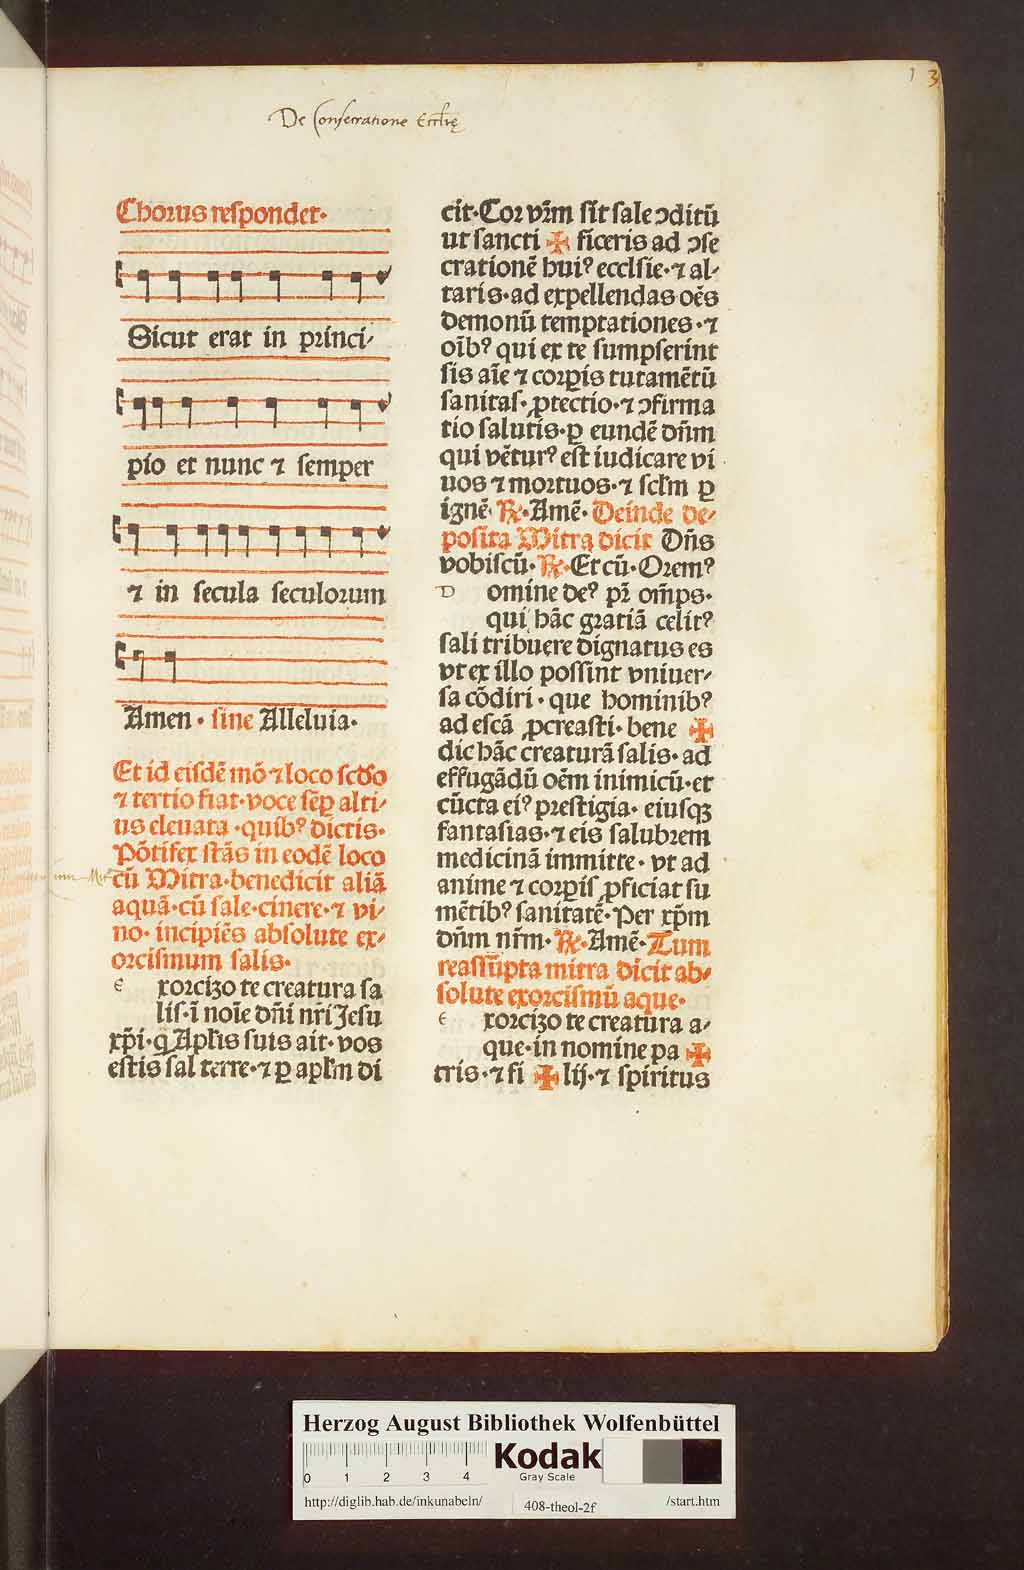 De Consecratione Eccl̄ię
13
Chorus respondet·
Sicut erat in princi⸗
pio et nunc ⁊ semper
⁊ in secula seculorum
Amen · sine Alleluia·
Et id eisdē mō ⁊ loco scd̄o
⁊ tertio fiat·voce sēꝑ alti⸗
us eleuata ·quibꝰ dictis·
Pōtifex stās in eodē loco
cū Mitra·benedicit aliā
aquā·cū sale·cinere·⁊ vi⸗
no· incipiēs absolute ex⸗
orcismum salis·
e xorcizo te creatura sa
lis·ī noīe dn̄i nr̄i Jesu
xp̄i·q̄ Apl̄is suis ait·vos
estis sal terre·⁊ ꝑ apl̄m di
cit·Cor vr̄m sit sale ↄditū
ut sancti ✠ ficeris ad ↄse
crationē huiꝰ eccl̄sie·⁊ al⸗
taris·ad expellendas oēs
demonū temptationes·⁊
oībꝰ qui ex te sumpserint
sis aīe ⁊ corꝑis tutamētū
sanitas·ꝓtectio·⁊ ↄfirma
tio salutis·ꝑ eundē dn̄m
qui vēturꝰ est iudicare vi
uos ⁊ mortuos·⁊ scl̄m ꝑ
ignē·℟·Amē· Deinde de⸗
posita Mitra dicit Dn̄s
vobiscū·℟·Et cū·Oremꝰ
D omine deꝰ pr̄ om̄ps·
qui hāc gratiā celitꝰ
sali tribuere dignatus es
vt ex illo possint vniuer⸗
sa cōdiri·que hominibꝰ
ad escā ꝓcreasti·bene ✠
dic hāc creaturā salis·ad
effugādū oēm inimicū·et
cūcta eiꝰ prestigia· eiusqꝫ
fantasias·⁊ eis salubrem
medicinā immitte·vt ad
anime ⁊ corꝑis ꝓficiat su
mētibꝰ sanitatē·Per xp̄m
dn̄m nr̄m·℟·Amē·Tum
reassūpta mitra dicit ab⸗
solute exorcismū aque·
e xorcizo te creatura a⸗
que·in nomine pa ✠
tris·⁊ fi ✠ lij·⁊ spiritus
Herzog August Bibliothek Wolfenbüttel
0 1 2 3 4
Kodak
Gray Scale
http://diglib.hab.de/inkunabeln/ 408-theol-2f /start.htm